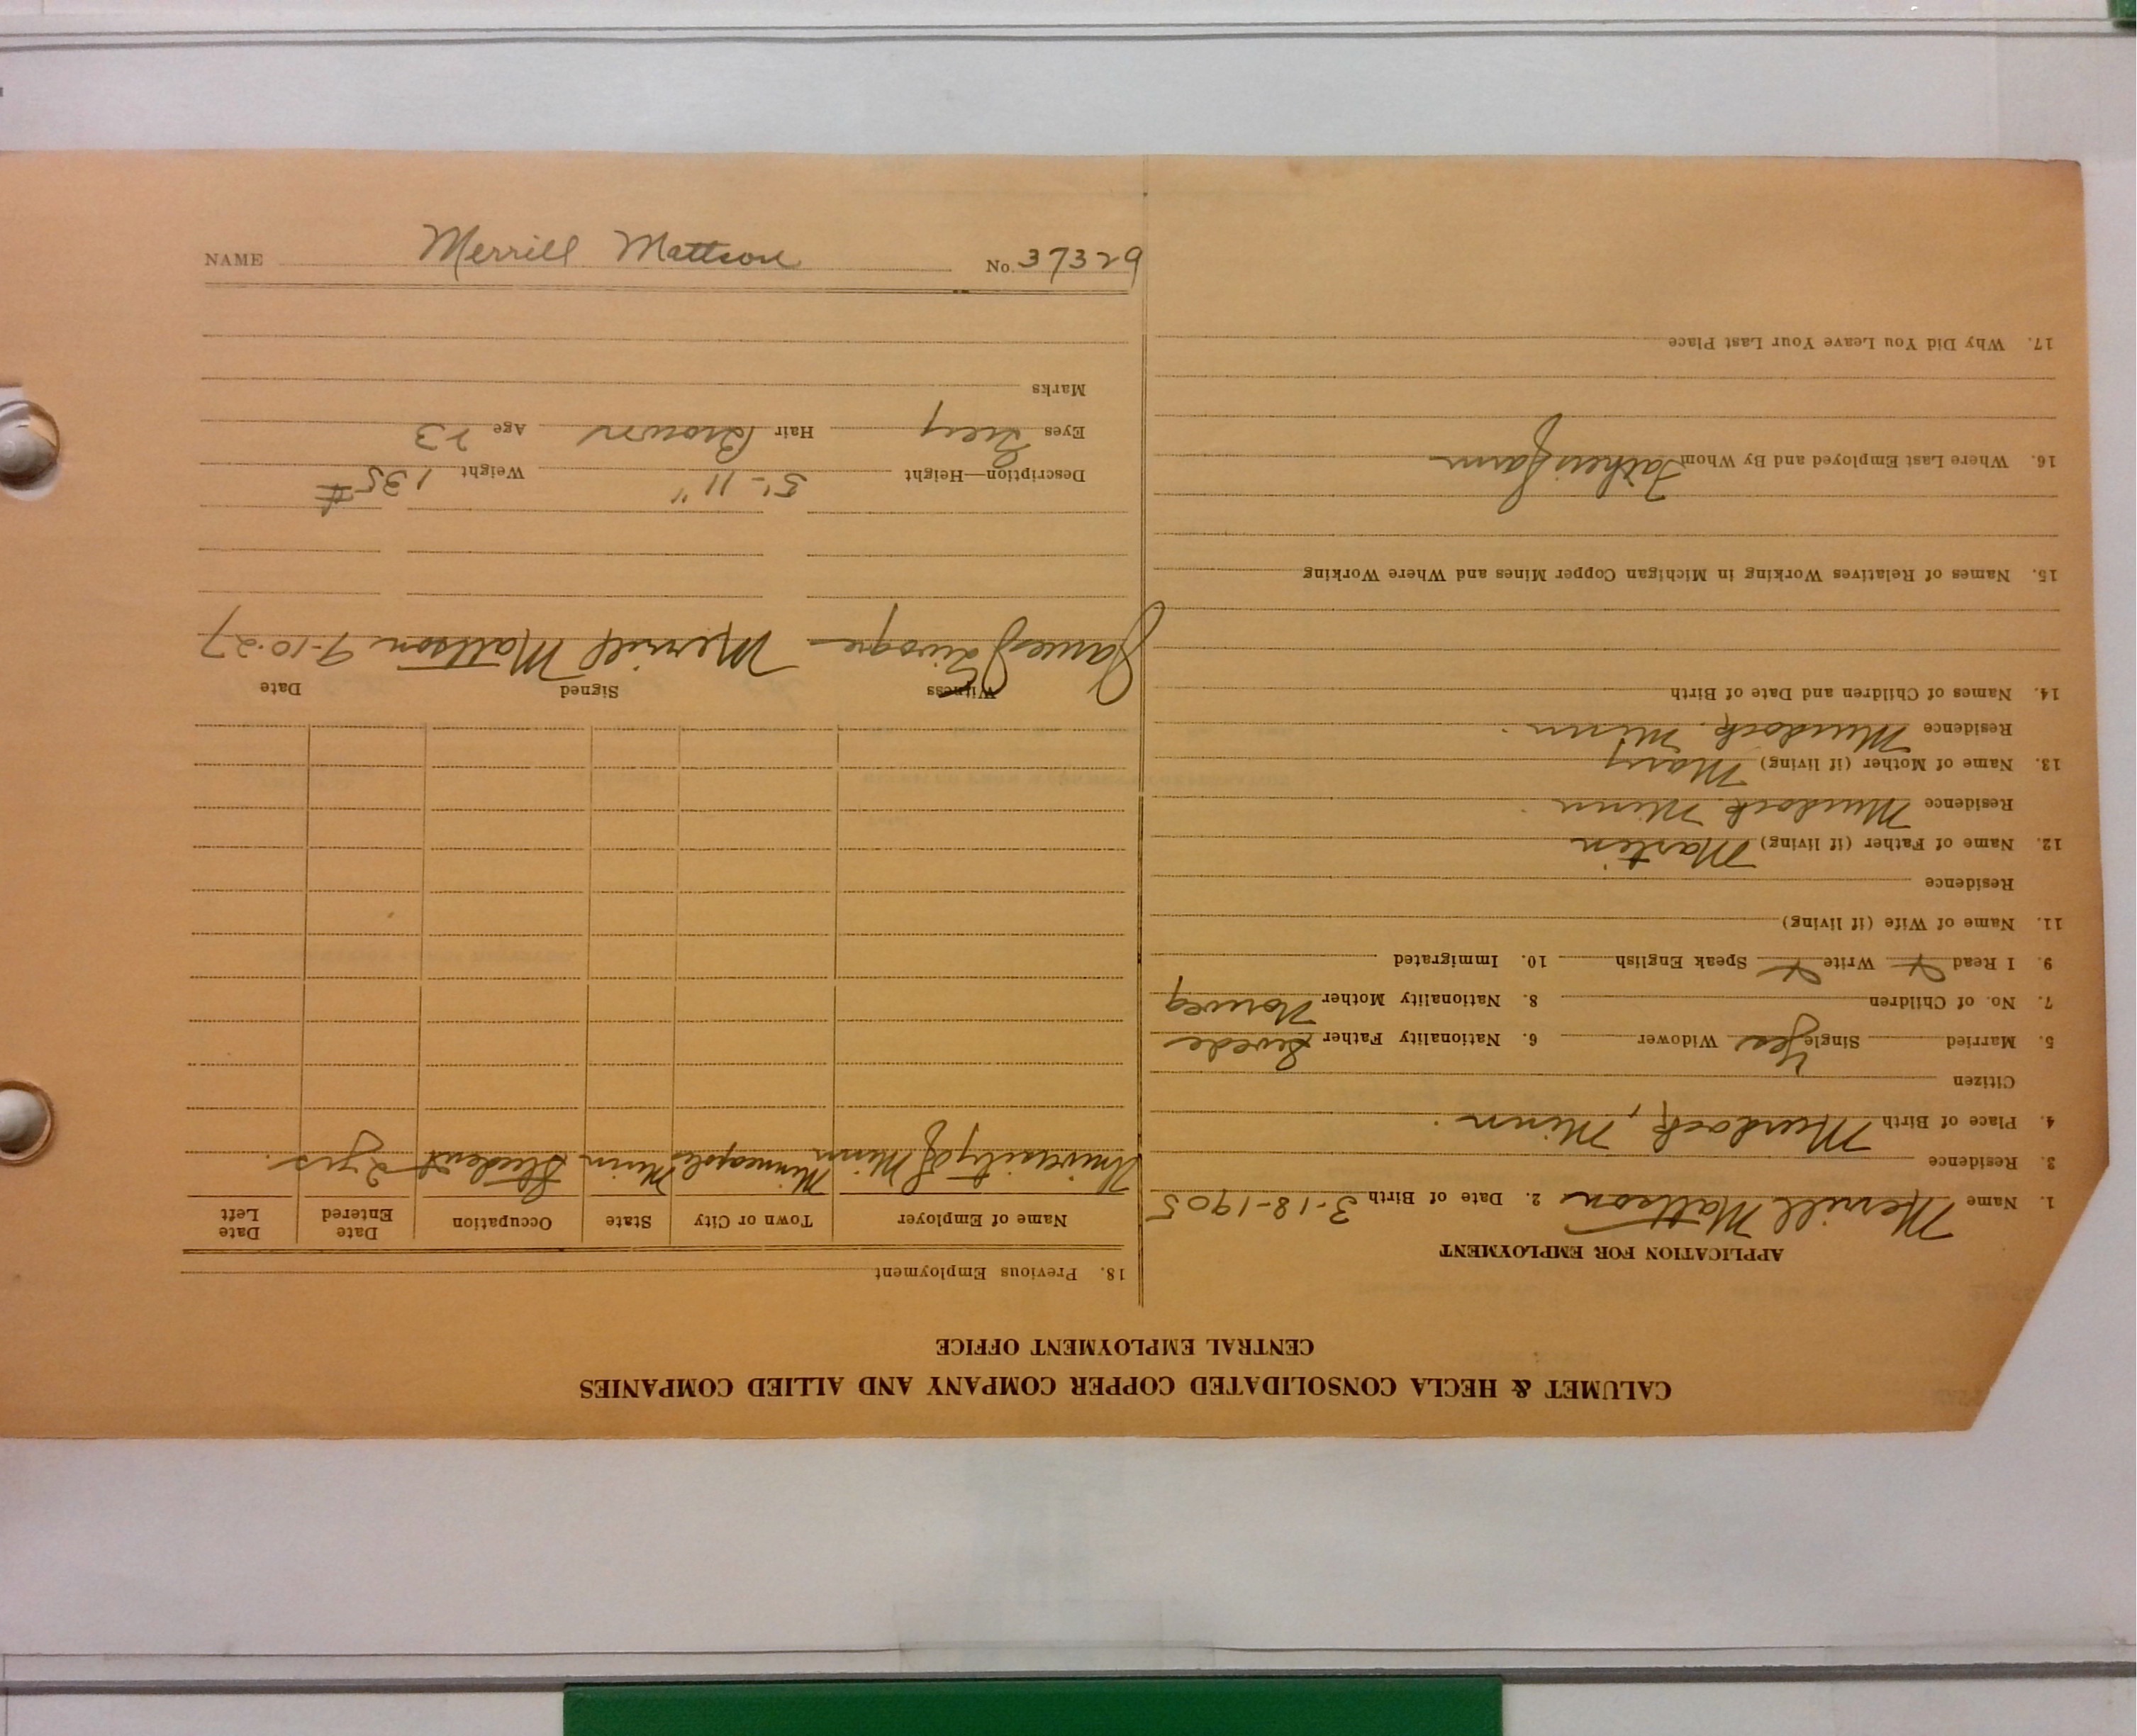 CALUMET & HECLA CONSOLIDATED COPPER COMPANY AND ALLIED COMPANIES
CENTRAL EMPLOYMENT OFFICE
APPLICATION FOR EMPLOYMENT
1. Name Merrill Mattson 2. Date of Birth 3-18-1905
3. Residence
4. Place of Birth Murdock, Minn.
Citizen
5. Married Single Yes Widower 6. Nationality Father Swede
7. No. of Children 8. Nationality Mother Norweg
9. I Read Write Speak English 10. Immigrated
11. Name of Wife (if living)
Residence
12. Name of Father (if living) Martin
Residence Murdock Minn.
13. Name of Mother (if living) Mary
Residence Murdock. Minn.
14. Names of Children and Date of Birth
15. Names of Relatives Working in Michigan Copper Mines and Where Working
16. Where Last Employed and By Whom Fathers farm
17. Why Did You Leave Your Last Place
18. Previous Employment
Name of Employer Town or City State Occupation Date Entered Date Left
University of Minn Minneapolis Minn Student 2 yrs.
Witness Signed Date
James Merrill Mattson 9-10-27
Description—Height 5'-11" Weight 135#
Eyes Grey Hair Brown Age 23
Marks
NAME Merrill Mattson No. 37329